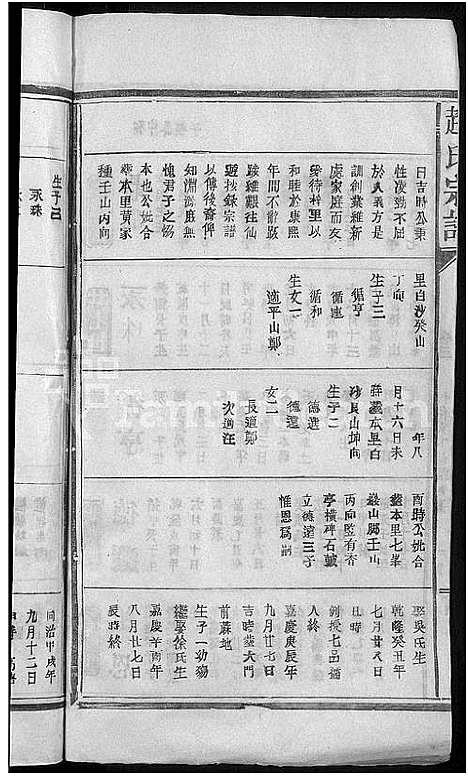 趙氏宗譜
日吉時公秉
性淩勁不屈
於人義方是
訓創業維新
處家庭而友
愛待村里以
和睦於康熙
年間不斷跋
踄維艱往仙
遊抜錄宗譜
以傳後裔俾
知淵源庶無
愧君子之務
本也公妣合
塟本里黄家
種壬山丙向
里白沙癸山
丁向
生子三
循亨
循連
循和
生女一
適平山鄭
年八
月十六日未
時塟本里白
沙艮山坤向
生子二
德選
德選
女二
長適鄭
次適汪
酉時公妣合
塟本里七峯
巖山脚壬山
丙向監有杏
亭橫碑石皷
立德遠三子
惟恩爲嗣
娶吳氏生
乾隆癸丑年
七月廿八日
例授七品頂
人終
嘉慶庚辰年
九月廿七日
吉時塟大門
前蔴地
生子一幼殇
繼娶徐氏生
嘉慶辛酉年
八月廿七日
辰時終
生子三
永森
同治甲戌年
九月十二日